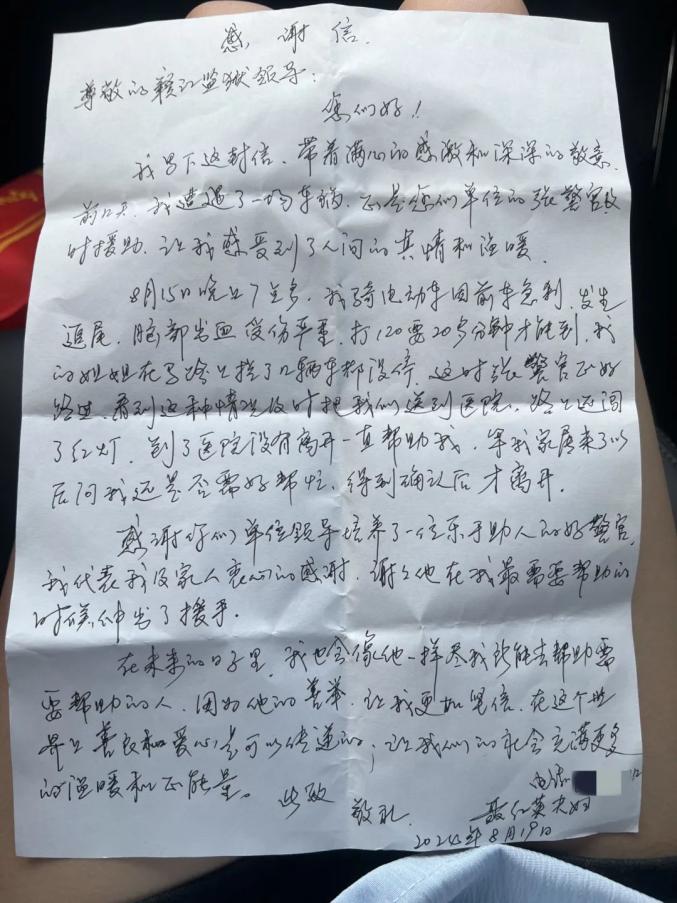 感谢信.
尊敬的赣江监狱领导:
您们好!
我写下这封信、带着满心的感激和深深的敬意.
前几天、我遭遇了一场车祸、正是您们单位的张警官及
时援助、让我感受到了人间的真情和温暖.
8月15日晚上7点多、我骑电动车因前车急刹、发生
追尾、脸部出血受伤严重、打120要20多分钟才能到、我
的姐姐在马路上拦了几辆车都没停、这时张警官正好
路过、看到这种情况及时把我们送到医院、路上还闯
了红灯、到了医院没有离开一直帮助我、等我家属来了以
后问我还是否需要帮忙、得到确认后才离开.
感谢你们单位领导培养了一位乐于助人的好警官.
我代表我及家人衷心的感谢、谢谢他在我最需要帮助的
时候伸出了援手.
在未来的日子里、我也会像他一样尽我所能去帮助需
要帮助的人、因为他的善举、让我更加坚信、在这个世
界上善良和爱心是可以传递的;让我们的社会充满更多
的温暖和正能量。
此致
敬礼.
电话
聂红英夫妇
2024年8月19日